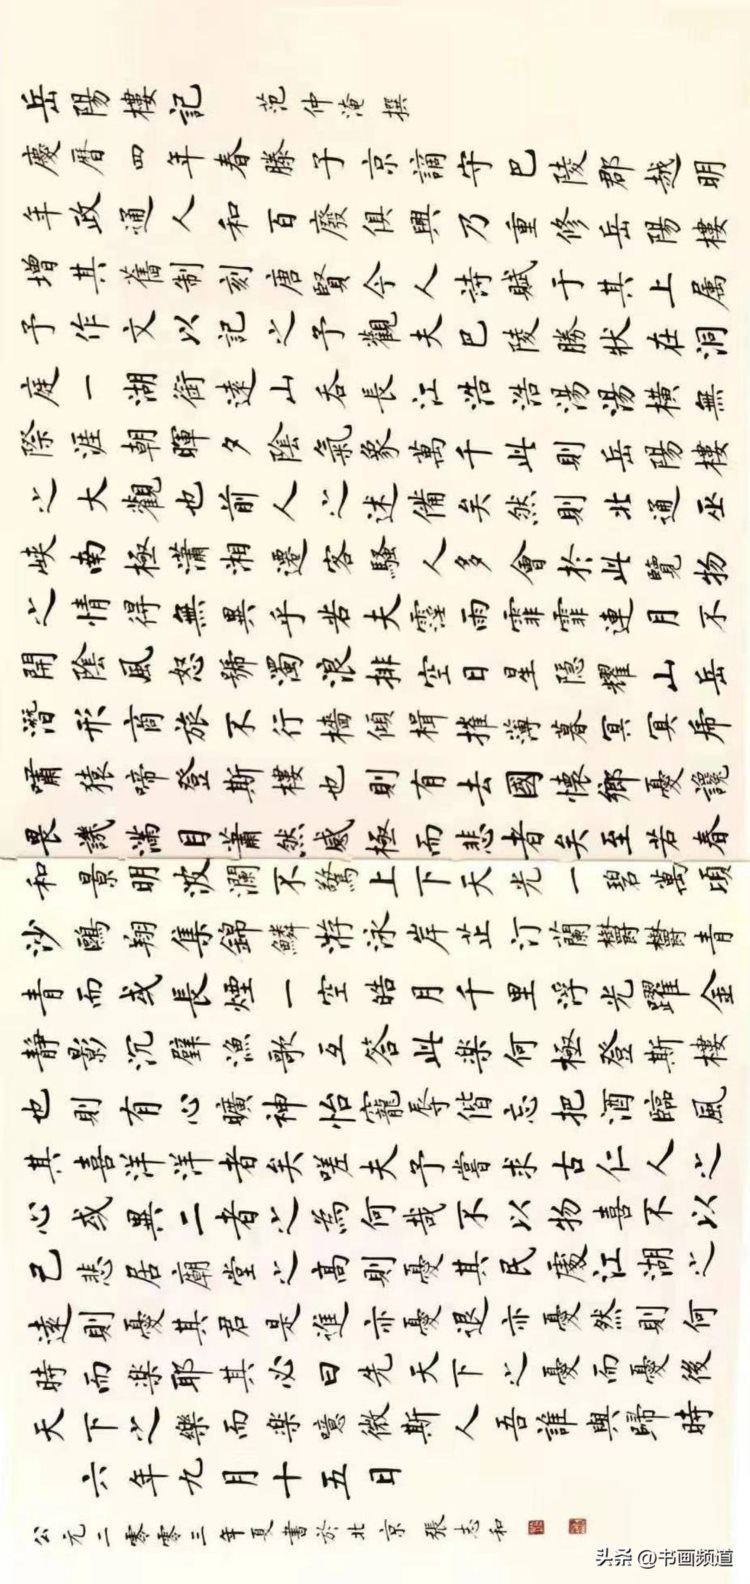 岳陽樓記 范仲淹撰
慶曆四年春滕子京謫守巴陵郡越明
年政通人和百廢俱興乃重修岳陽樓
增其舊制刻唐賢今人詩賦于其上属
予作文以記之予觀夫巴陵勝狀在洞
庭一湖銜遠山吞長江浩浩湯湯橫無
際涯朝暉夕陰氣象萬千此則岳陽樓
之大觀也前人之述備矣然則北通巫
峽南極瀟湘遷客騷人多會於此覽物
之情得無異乎若夫霪雨霏霏連月不
開陰風怒號濁浪排空日星隱耀山岳
潛形商旅不行檣傾楫摧薄暮冥冥虎
嘯猿啼登斯樓也則有去國懷鄉憂讒
畏譏滿目蕭然感極而悲者矣至若春
和景明波瀾不驚上下天光一碧萬頃
沙鷗翔集錦鱗游泳岸芷汀蘭鬱鬱青
青而或長煙一空皓月千里浮光躍金
靜影沉璧漁歌互答此楽何極登斯樓
也則有心曠神怡寵辱偕忘把酒臨風
其喜洋洋者矣嗟夫予嘗求古仁人之
心或異二者之為何哉不以物喜不以
己悲居廟堂之高則憂其民處江湖之
遠則憂其君是進亦憂退亦憂然則何
時而楽耶其必曰先天下之憂而憂後
天下之樂而楽噫微斯人吾誰與歸時
六年九月十五日
公元二零零三年夏書於北京張志和
头条 @书画频道